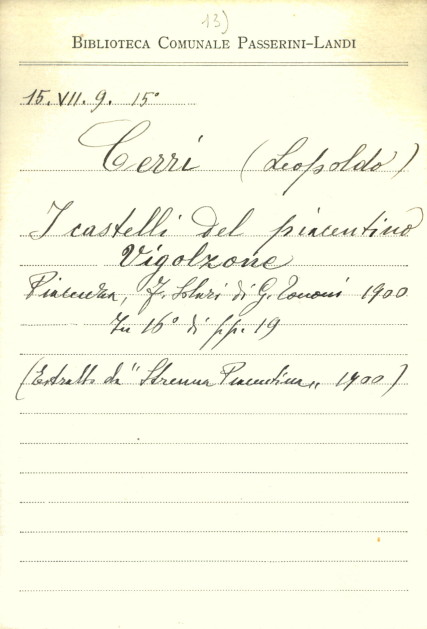 13)
BIBLIOTECA COMUNALE PASSERINI-LANDI
15. VII. 9. 15°
Cerri (Leopoldo)
I castelli del piacentino
Vigolzone
Piacenza, F. Solari di G. Tononi 1900
In 16° di pp. 19
(Estratto da "Strenna Piacentina„ 1900)